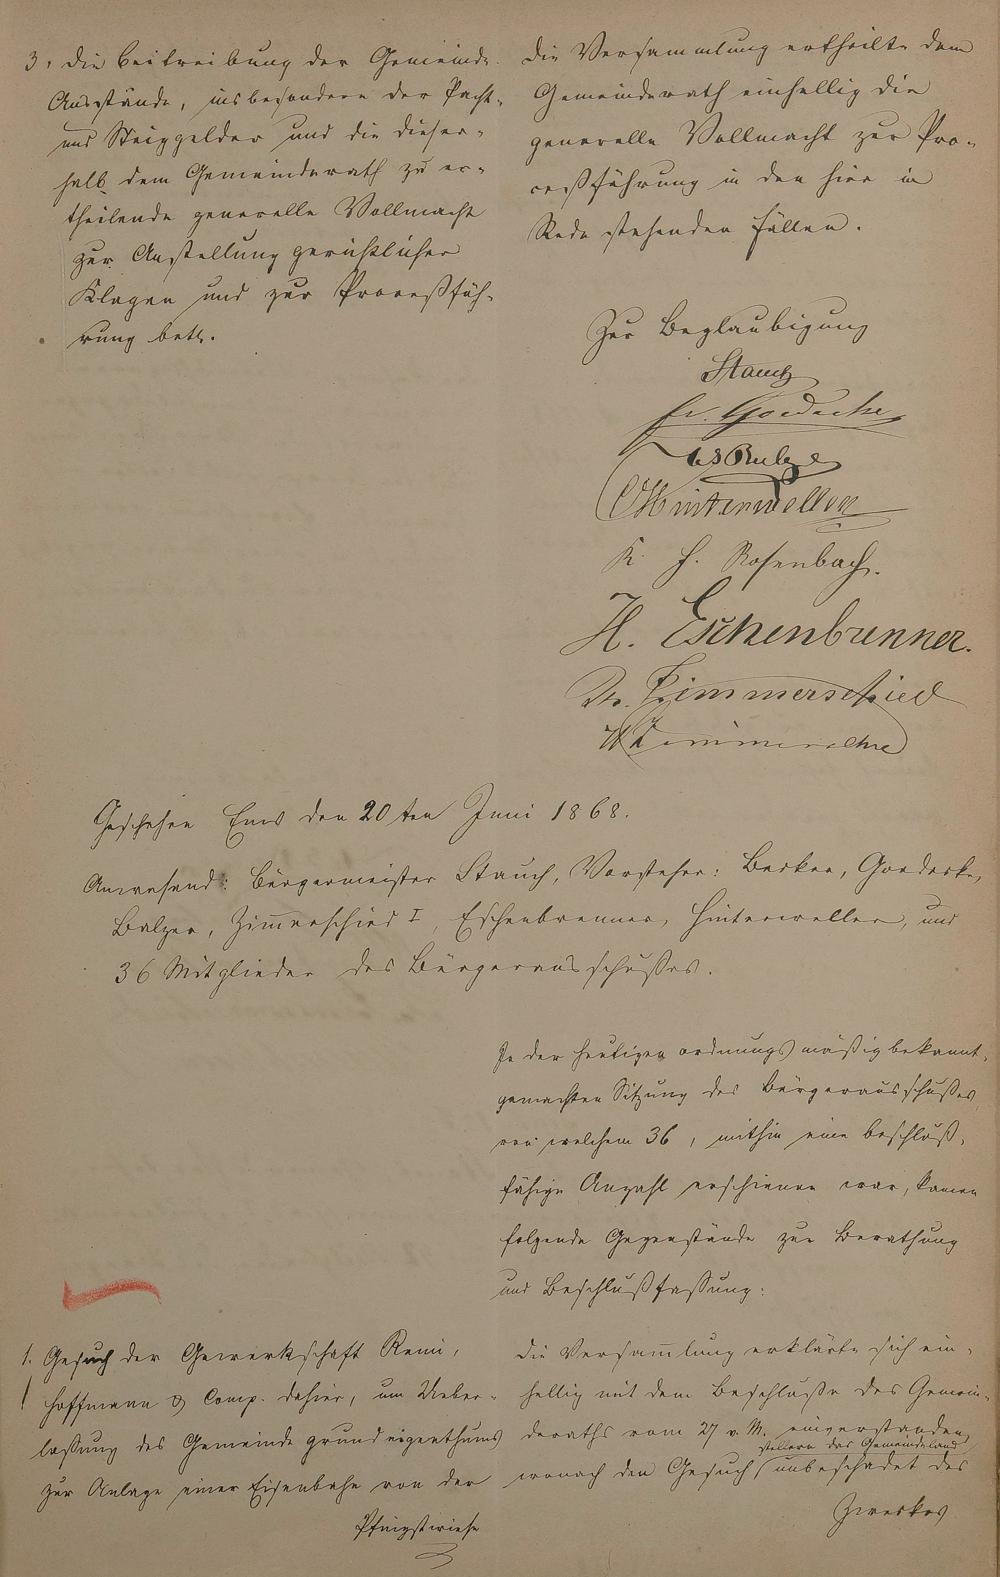 3, Die Beitreibung der Gemeinde-
Ausstände, insbesondere der Pacht-
und Steiggelder und die dieser-
halb dem Gemeinderath zu er-
theilende generelle Vollmacht
zur Anstellung gerichtlicher
Klagen und zur Proceßfüh-
rung betr.
Die Versammlung ertheilte dem
Gemeinderath einhellig die
generelle Vollmacht zur Pro-
ceßführung in den hier in
Rede stehenden Fällen.
Zur Beglaubigung
Stauch
Fr. Goedecke
Balzer
Hinterweller
K. H. Rosenbach.
H. Eschenbrenner.
Zimmerschied
Geschehen Ems den 20ten Juni 1868.
Anwesend: Bürgermeister Stauch, Vorsteher: Becker, Goedecke,
Balzer, Zim̅erschied I, Eschenbrenner, Hinterweller, und
36 Mitglieder des Bürgerausschußes.
In der heutigen ordnungsmäßig bekannt-
gemachten Sitzung des Bürgerausschußes
von welchem 36, mithin eine beschluß-
fähige Anzahl erschienen war, kamen
folgende Gegenstände zur Berathung
und Beschlußfassung:
1. Gesuch der Gewerkschaft Remi,
Hoffmann & Comp. dahier, um Ueber-
lassung des Gemeindegrundeigenthums
zur Anlage einer Eisenbahn von der
Pfingstwiese
Die Versam̅lung erklärte sich ein-
hellig mit dem Beschluße des Gemein-
deraths vom 27 v. M. einverstanden,
wonach den Gesuch stellern das Gemeindeland unbeschadet des
Zweckes